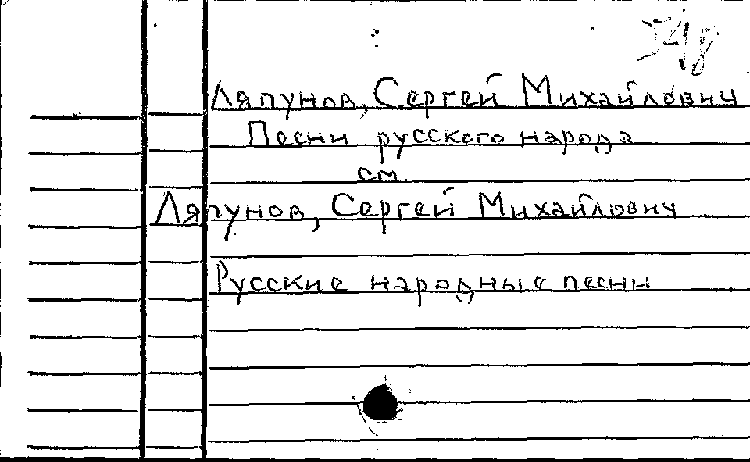 Ляпунов, Сергей Михайлович
Песни русского народа
см.
Ляпунов, Сергей Михайлович
Русские народные песни